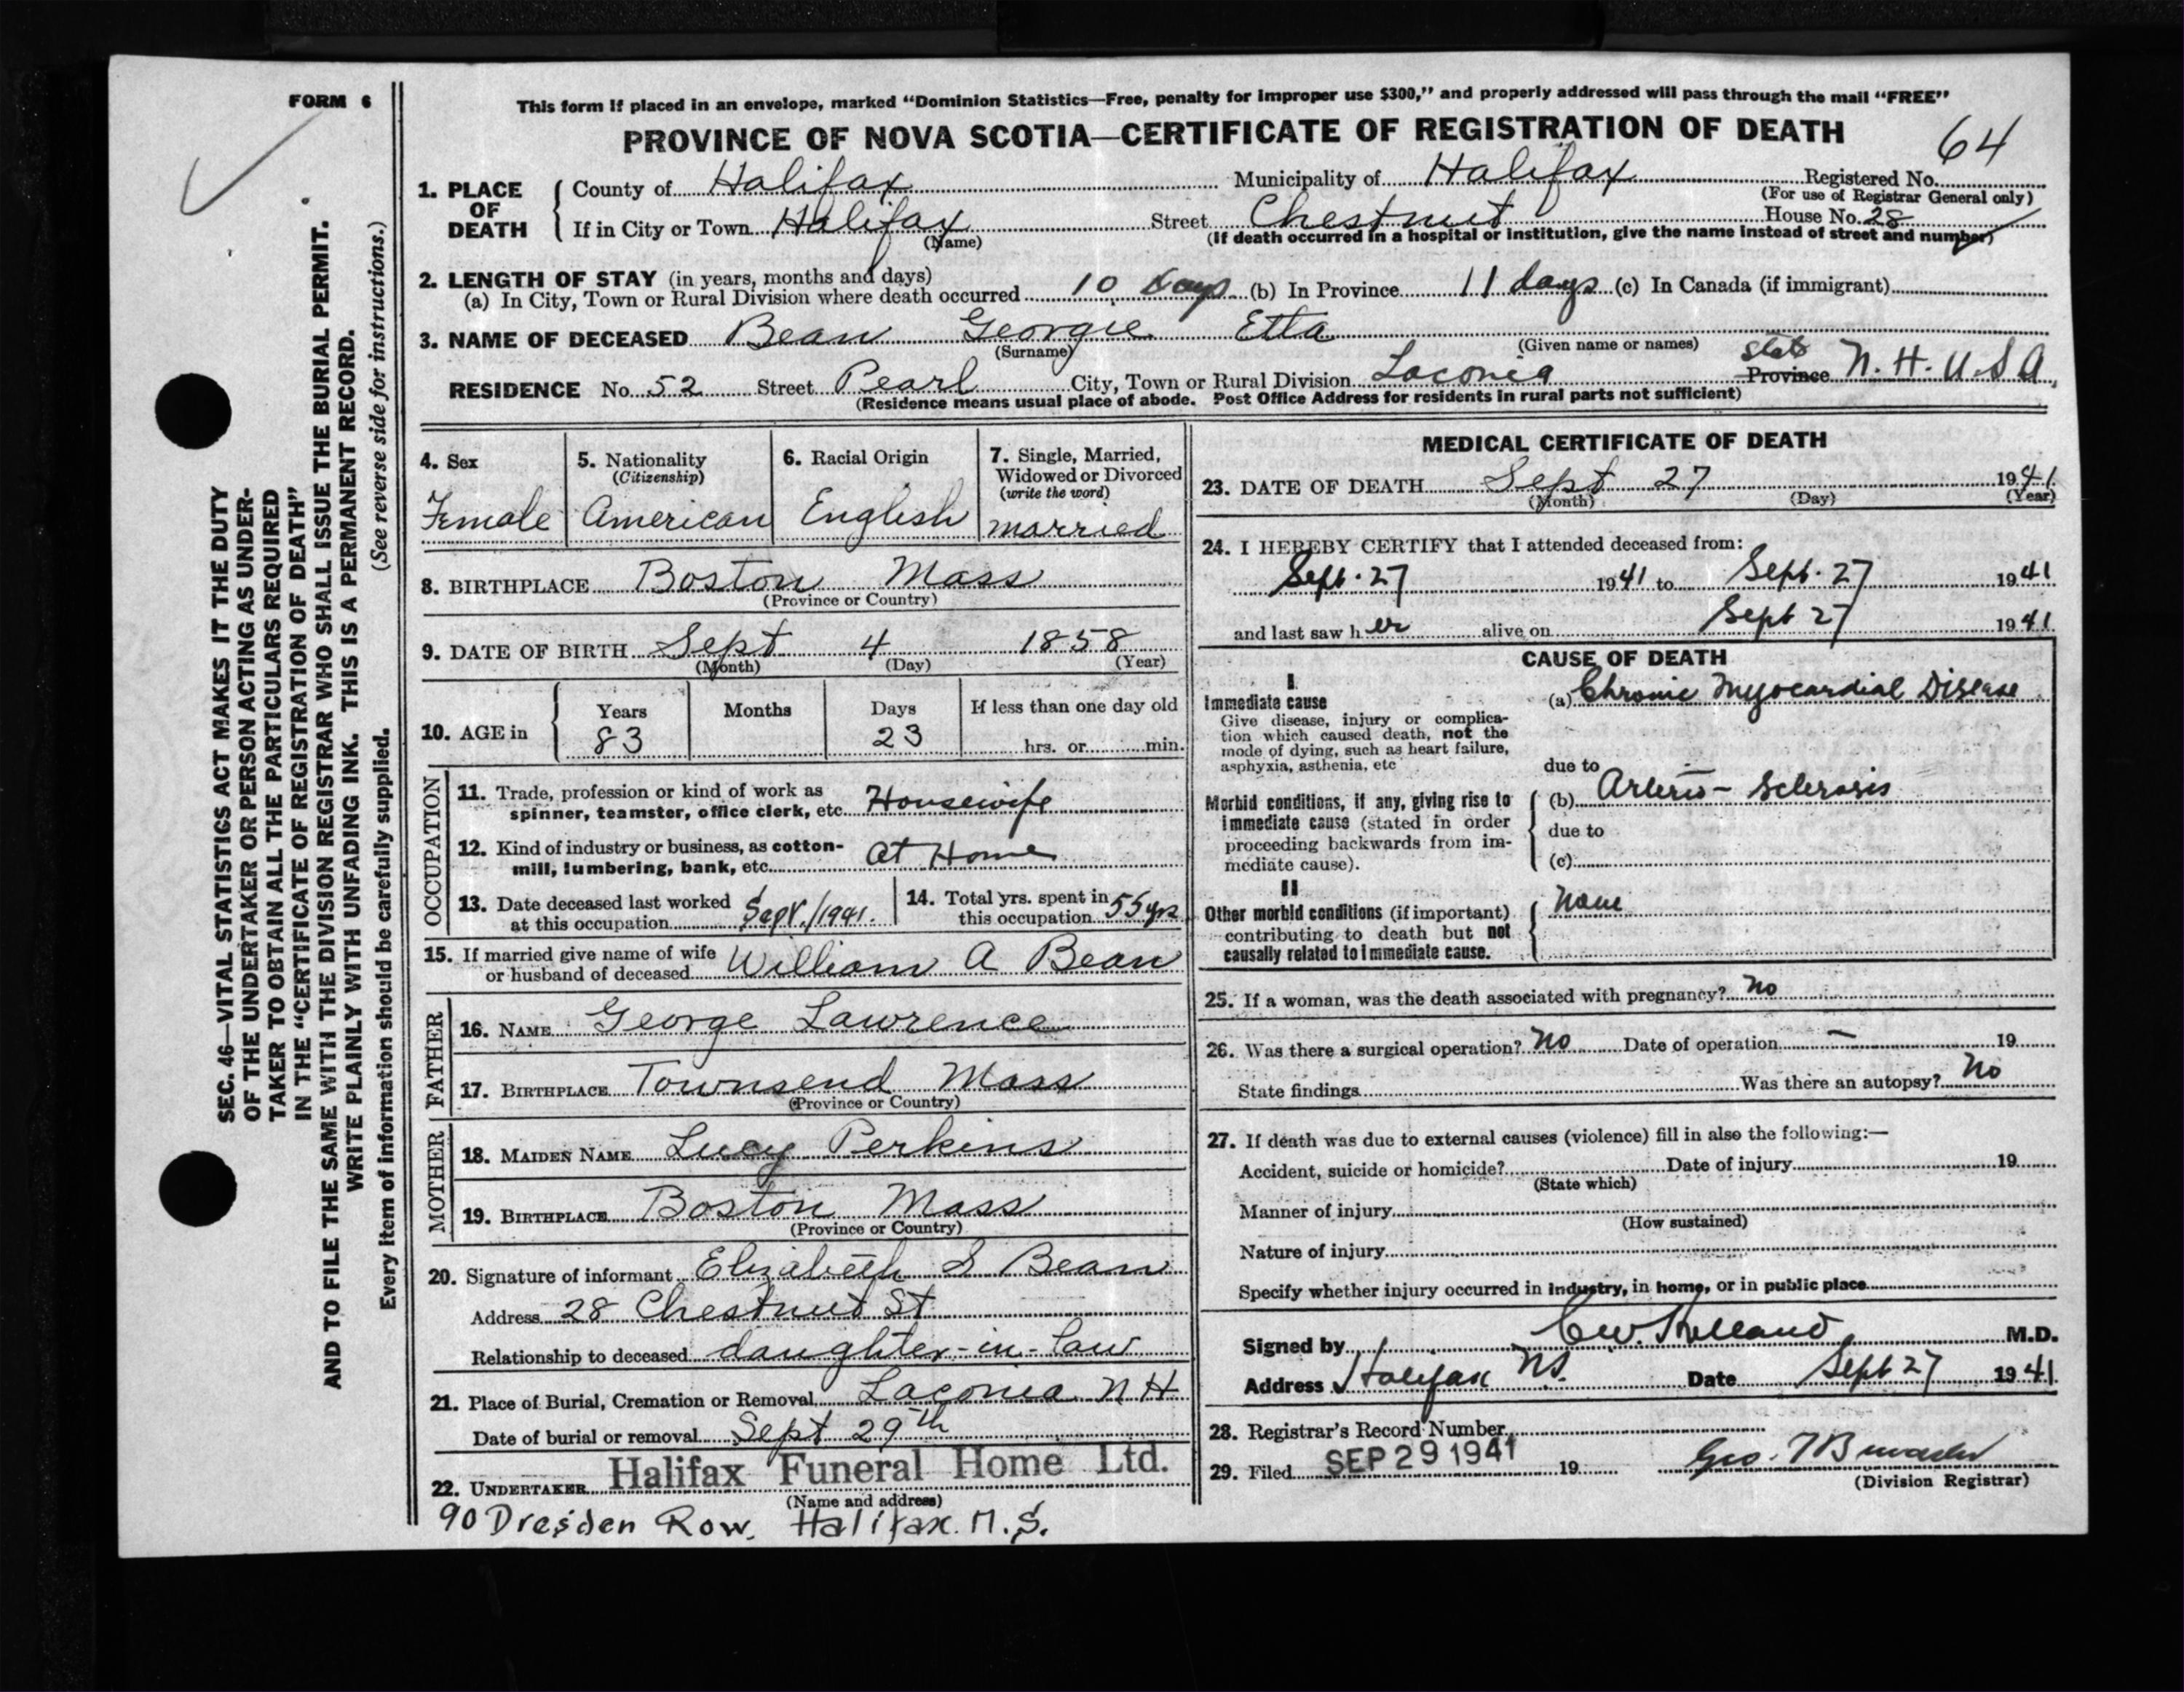 FORM 6
This form if placed in an envelope, marked "Dominion Statistics—Free, penalty for improper use $300," and properly addressed will pass through the mail "FREE"
PROVINCE OF NOVA SCOTIA—CERTIFICATE OF REGISTRATION OF DEATH
64
1. PLACE OF DEATH
County of Halifax Municipality of Halifax Registered No.
(For use of Registrar General only)
If in City or Town Halifax Street Chestnut House No. 28
(Name) (If death occurred in a hospital or institution, give the name instead of street and number)
2. LENGTH OF STAY (in years, months and days)
(a) In City, Town or Rural Division where death occurred 10 days (b) In Province 11 days (c) In Canada (if immigrant)
3. NAME OF DECEASED Bean Georgie Etta
(Surname) (Given name or names)
RESIDENCE No. 52 Street Pearl City, Town or Rural Division Laconia Province State N. H. U.S.A.
(Residence means usual place of abode. Post Office Address for residents in rural parts not sufficient)
4. Sex
Female
5. Nationality
(Citizenship)
American
6. Racial Origin
English
7. Single, Married,
Widowed or Divorced
(write the word)
married
8. BIRTHPLACE Boston Mass
(Province or Country)
9. DATE OF BIRTH Sept 4 1858
(Month) (Day) (Year)
10. AGE in
Years Months Days If less than one day old
83 23 hrs. or min.
OCCUPATION
11. Trade, profession or kind of work as
spinner, teamster, office clerk, etc. Housewife
12. Kind of industry or business, as cotton-
mill, lumbering, bank, etc. At Home
13. Date deceased last worked
at this occupation Sept./1941.
14. Total yrs. spent in
this occupation 55 yrs
15. If married give name of wife
or husband of deceased William A Bean
FATHER
16. NAME George Lawrence
17. BIRTHPLACE Townsend Mass
(Province or Country)
MOTHER
18. MAIDEN NAME Lucy Perkins
19. BIRTHPLACE Boston Mass
(Province or Country)
20. Signature of informant Elizabeth S Bean
Address 28 Chestnut St
Relationship to deceased daughter-in-law
21. Place of Burial, Cremation or Removal Laconia N H
Date of burial or removal Sept 29th
22. UNDERTAKER Halifax Funeral Home Ltd.
(Name and address)
90 Dresden Row. Halifax. N. S.
MEDICAL CERTIFICATE OF DEATH
23. DATE OF DEATH Sept 27 1941
(Month) (Day) (Year)
24. I HEREBY CERTIFY that I attended deceased from:
Sept. 27 1941 to Sept. 27 1941
and last saw her alive on Sept 27 1941
CAUSE OF DEATH
I
Immediate cause
Give disease, injury or complica-
tion which caused death, not the
mode of dying, such as heart failure,
asphyxia, asthenia, etc
(a) Chronic Myocardial Disease
due to
Morbid conditions, if any, giving rise to
immediate cause (stated in order
proceeding backwards from im-
mediate cause).
(b) Arterio-sclerosis
due to
(c)
II
Other morbid conditions (if important)
contributing to death but not
causally related to immediate cause.
None
25. If a woman, was the death associated with pregnancy? No
26. Was there a surgical operation? No Date of operation — 19
State findings Was there an autopsy? No
27. If death was due to external causes (violence) fill in also the following:—
Accident, suicide or homicide? Date of injury 19
(State which)
Manner of injury
(How sustained)
Nature of injury
Specify whether injury occurred in industry, in home, or in public place
Signed by M.D.
Address Halifax NS. Date Sept 27 1941
28. Registrar's Record Number
29. Filed SEP 29 1941 19 Geo.
(Division Registrar)
SEC. 46—VITAL STATISTICS ACT MAKES IT THE DUTY
OF THE UNDERTAKER OR PERSON ACTING AS UNDER-
TAKER TO OBTAIN ALL THE PARTICULARS REQUIRED
IN THE "CERTIFICATE OF REGISTRATION OF DEATH"
AND TO FILE THE SAME WITH THE DIVISION REGISTRAR WHO SHALL ISSUE THE BURIAL PERMIT.
WRITE PLAINLY WITH UNFADING INK. THIS IS A PERMANENT RECORD.
(See reverse side for instructions.)
Every item of information should be carefully supplied.